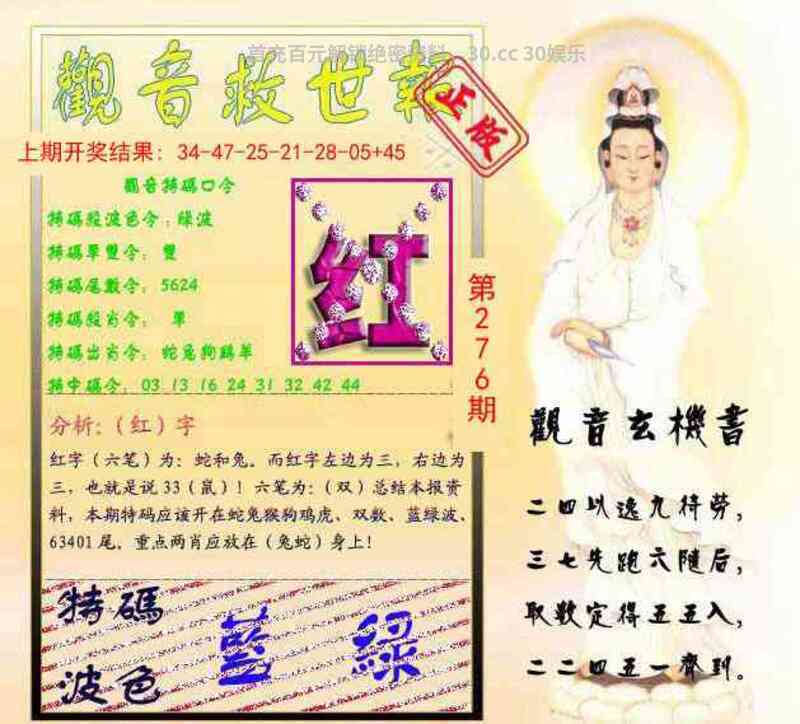 首充百元解锁绝密资料 30.cc 30娱乐
觀音救世報
正版
上期开奖结果：34-47-25-21-28-05+45
觀音特碼口令
特碼殺波色令：绿波
特碼單雙令：雙
特碼尾數令：5624
特碼殺肖令：單
特碼出肖令：蛇兔狗鷄羊
特中碼令：03 13 16 24 31 32 42 44
红
第276期
分析：（红）字
红字（六笔）为：蛇和兔。而红字左边为三，右边为
三，也就是说33（鼠）！六笔为：（双）总结本报资
料，本期特码应该开在蛇兔猴狗鸡虎、双数、蓝绿波、
63401尾。重点两肖应放在（兔蛇）身上！
特碼
波色
藍 綠
觀音玄機書
二四以逸九待劳，
三七先跑六随后，
取数定得五五入，
二二四五一齊到。